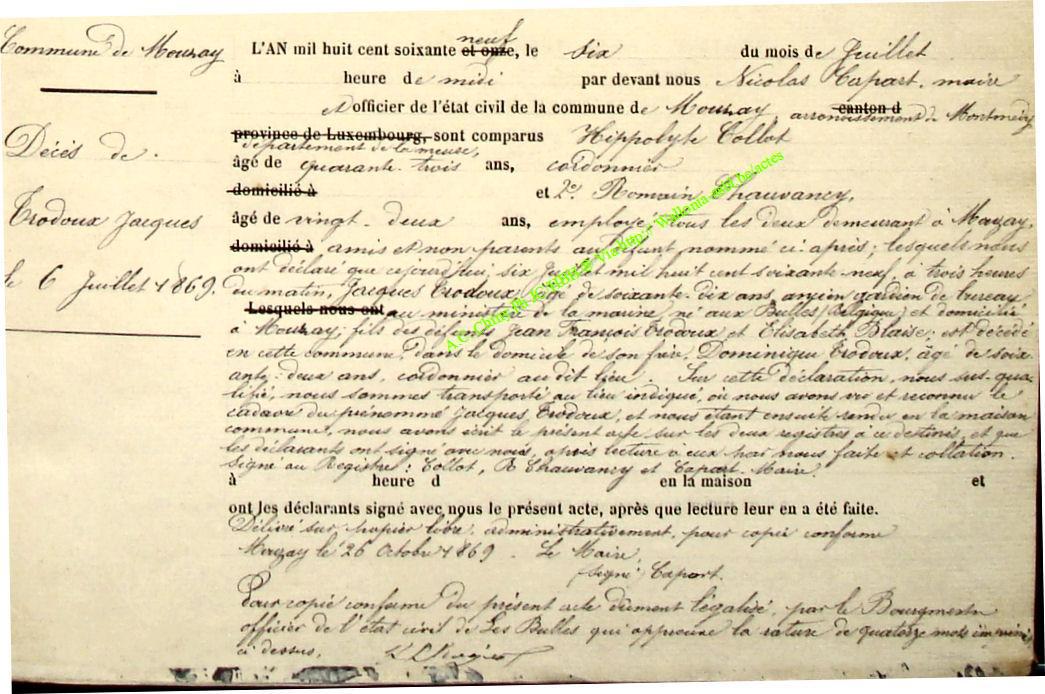 Commune de Mouzay
Décès de
Trodoux Jacques
le 6 Juillet 1869.
neuf
L'AN mil huit cent soixante et onze, le six du mois de Juillet
à heure de midi par devant nous Nicolas Capart, maire
officier de l'état civil de la commune de Mouzay, canton d arrondissement de Montmédy
province de Luxembourg, sont comparus Hippolyte Collot
département de la meuse,
âgé de quarante trois ans, cordonnier
domicilié à et 2º Romain Chauvancy,
âgé de vingt-deux ans, employé, tous les deux demeurant à Mouzay,
domicilié à amis et non parents au défunt nommé ci après; lesquels nous
ont déclaré que cejourd'hui, six Juillet mil huit cent soixante neuf, à trois heures
du matin, Jacques Trodoux, âgé de soixante-dix ans, ancien gardien de bureau
Lesquels nous ont au ministère de la marine, né aux Bulles (Belgique) et domicilié
à Mouzay; fils des défunts Jean François Trodoux et Elisabeth Blaise; est décédé
en cette commune, dans le domicile de son frère, Dominique Trodoux, âgé de soix-
ante-deux ans, cordonnier au dit lieu. Sur cette déclaration, nous sus-qua-
lifié, nous sommes transporté au lieu indiqué, où nous avons vu et reconnu le
cadavre du prénommé Jacques Trodoux, et nous étant ensuite rendu en la maison
commune, nous avons écrit le présent acte sur les deux registres à ce destinés, et que
les déclarants ont signé avec nous, après lecture à eux par nous faite et collation.
Signé au Registre: Collot, R Chauvancy et Capart. Maire.
à heure d en la maison et
ont les déclarants signé avec nous le présent acte, après que lecture leur en a été faite.
Délivré sur papier libre, administrativement, pour copie conforme
Mouzay le 26 Octobre 1869. Le Maire,
(signé) Capart.
Pour copie conforme du présent acte dûment légalisé, par le Bourgmestre
officier de l'état civil de Les Bulles qui approuve la rature de quatorze mots imprimés
ci dessus.